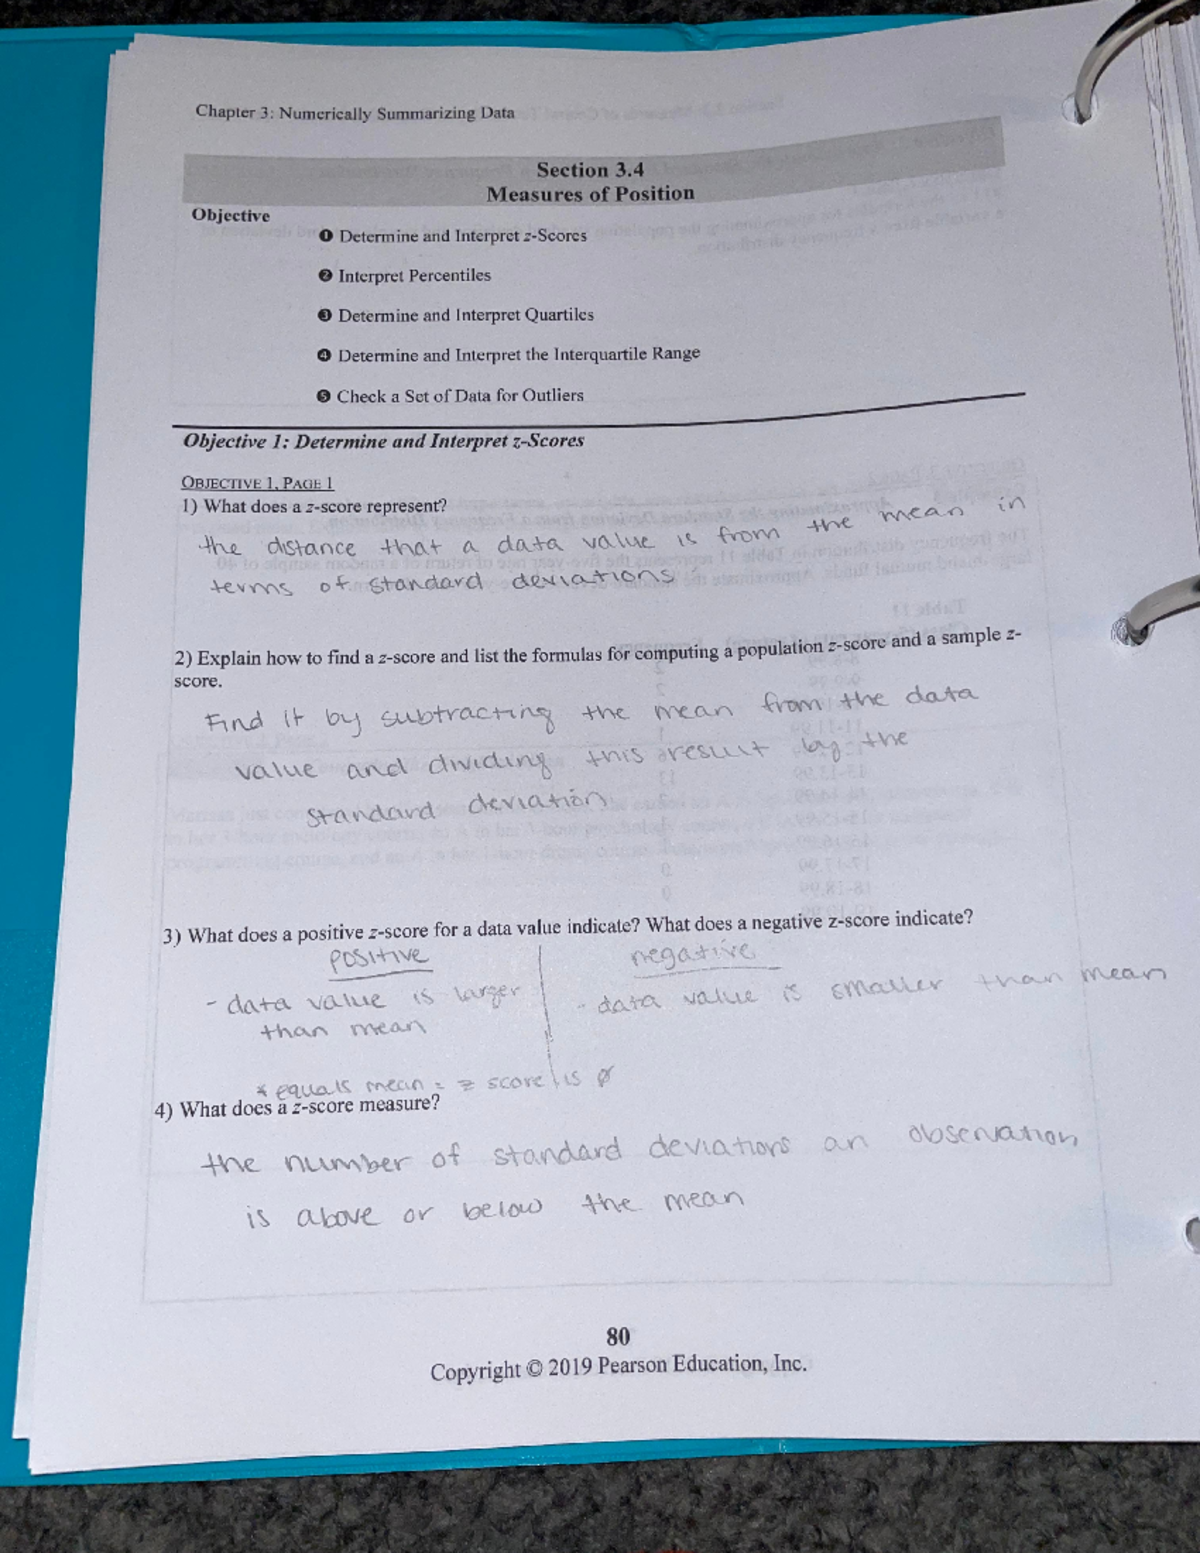 Chapter 3: Numerically Summarizing Data
Section 3.4
Measures of Position
Objective
❶ Determine and Interpret z-Scores
❷ Interpret Percentiles
❸ Determine and Interpret Quartiles
❹ Determine and Interpret the Interquartile Range
❺ Check a Set of Data for Outliers
Objective 1: Determine and Interpret z-Scores
OBJECTIVE 1, PAGE 1
1) What does a z-score represent?
the distance that a data value is from the mean in
terms of standard deviations
2) Explain how to find a z-score and list the formulas for computing a population z-score and a sample z-
score.
Find it by subtracting the mean from the data
value and dividing this result by the
standard deviation
3) What does a positive z-score for a data value indicate? What does a negative z-score indicate?
positive negative
- data value is larger - data value is smaller than mean
than mean
* equals mean = z score is Ø
4) What does a z-score measure?
the number of standard deviations an observation
is above or below the mean
80
Copyright © 2019 Pearson Education, Inc.